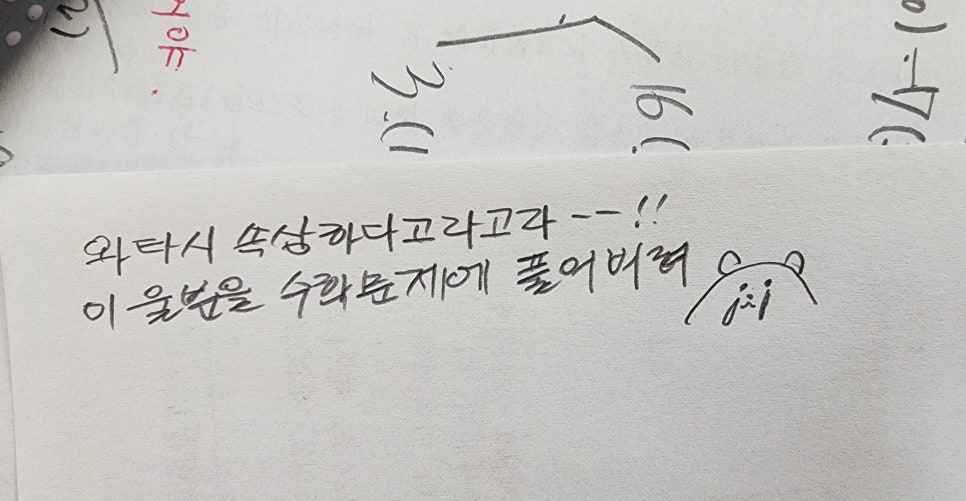 와타시 속상하다고라고라 --!!
이 울분을 수학문제에 풀어버려